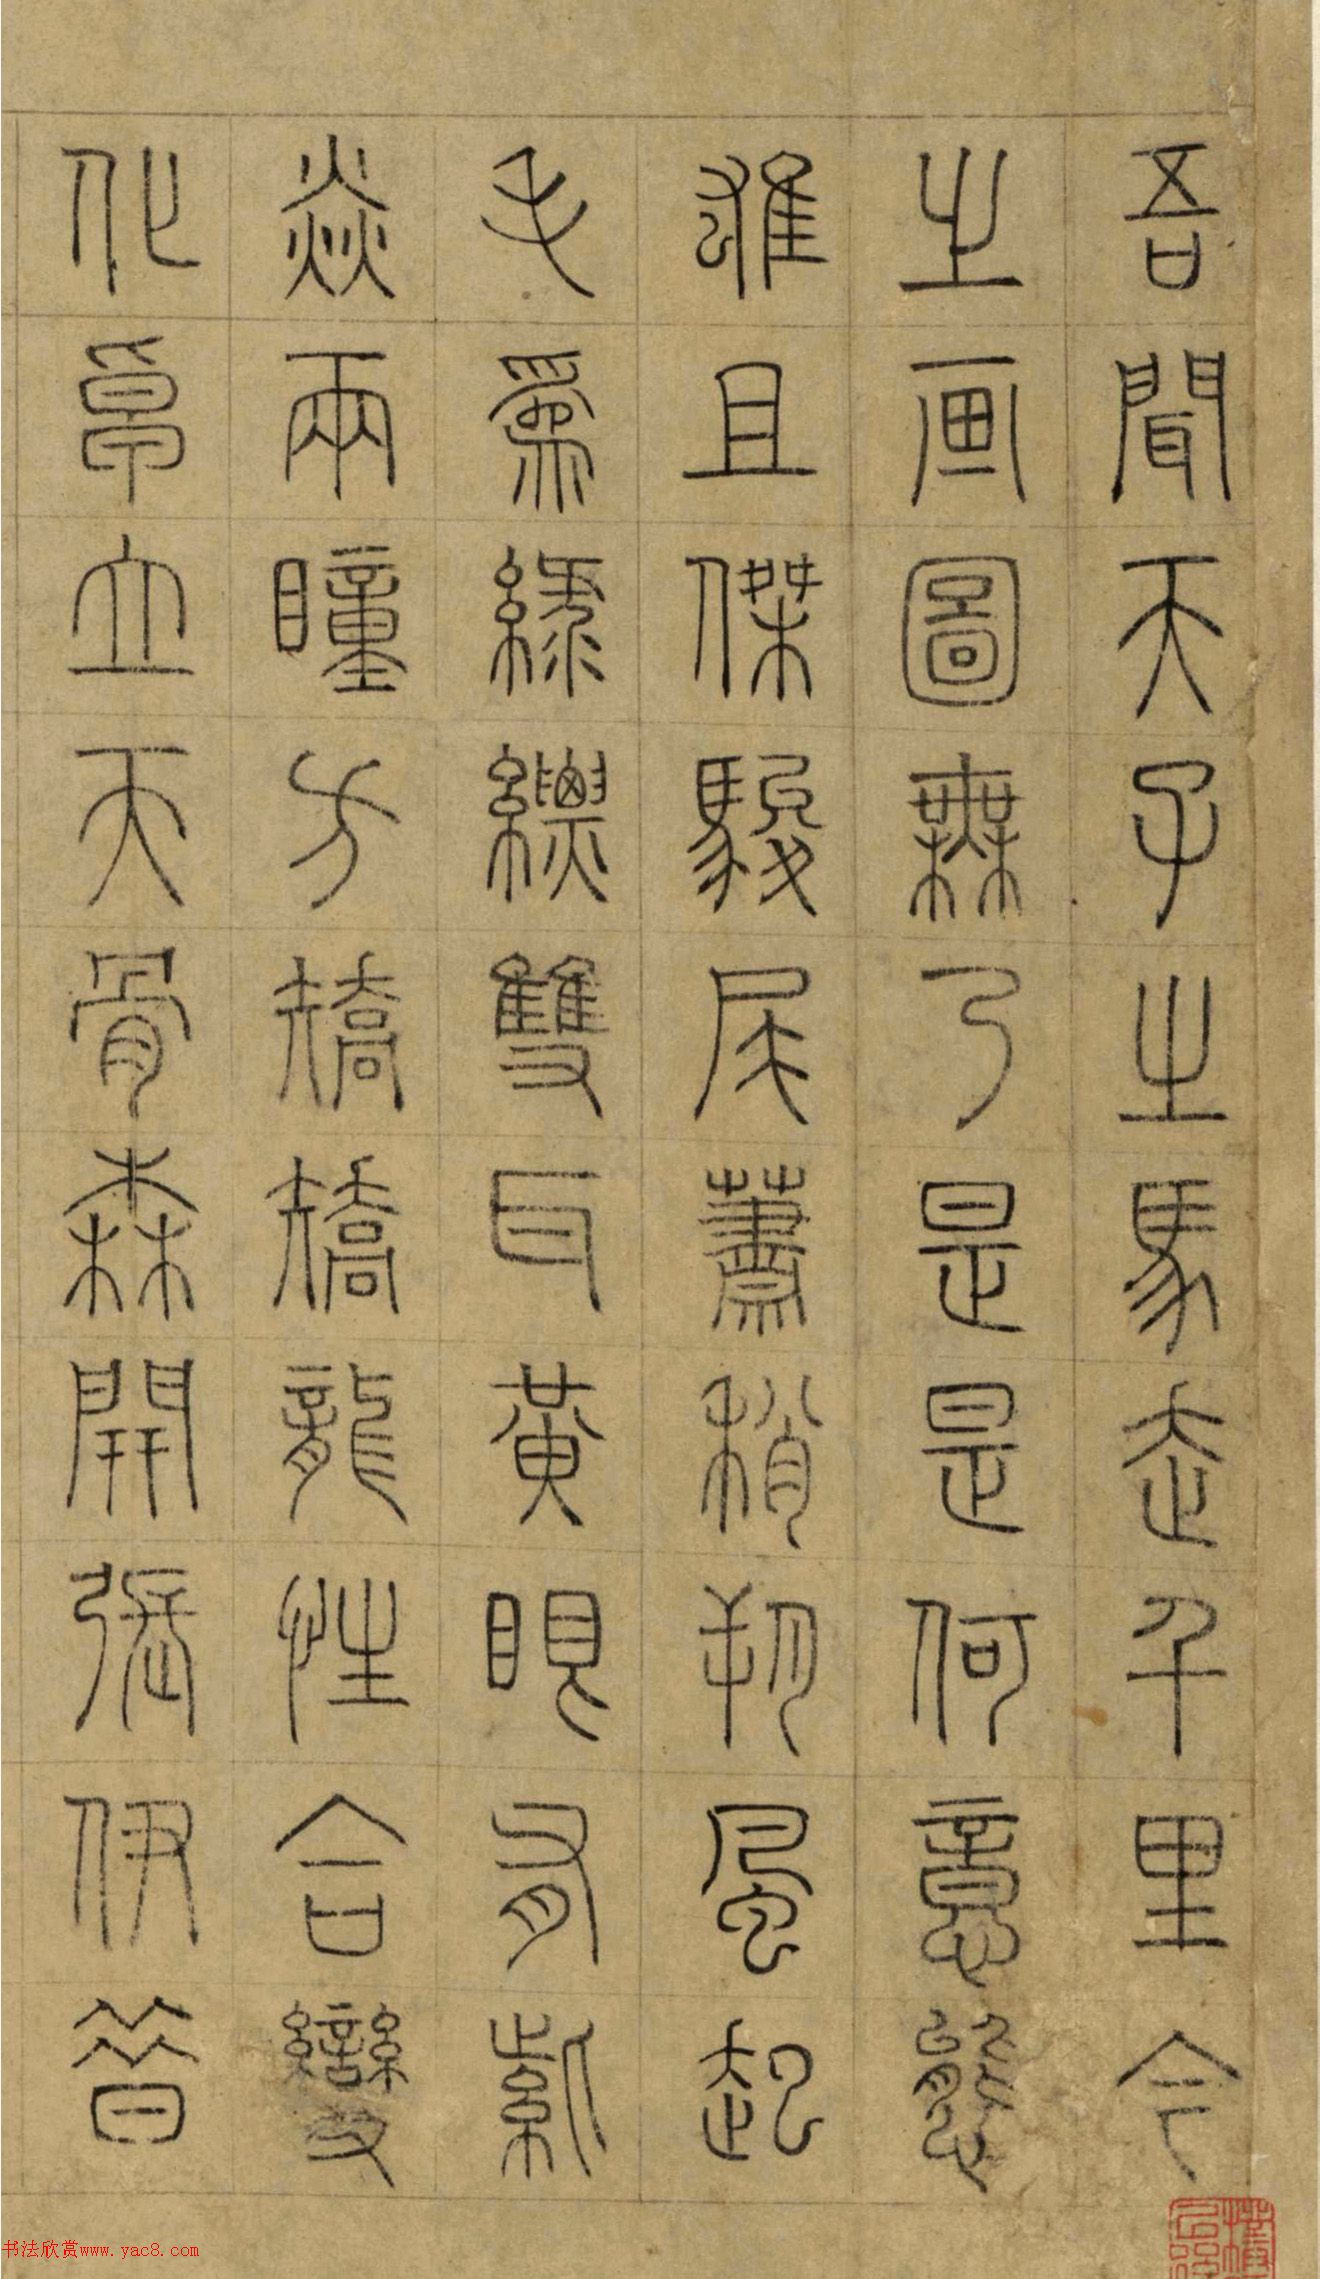 吾聞天子之馬走千里今
之画圖無乃是是何意態
雄且傑駿尾蕭稍朔風起
毛為綠縹雙耳黃眼有紫
焱兩瞳方矯矯龍性合變
化卓立天骨森開張伊昔
书法欣赏www.yac8.com